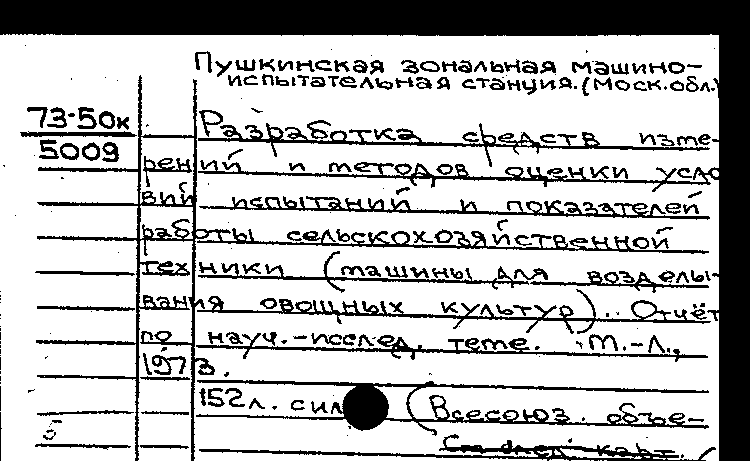 Пушкинская зональная машино-
испытательная станция. (Моск. обл.)
73-50к
Разработка средств изме-
5009
рений и методов оценки усло
вий испытаний и показателей
работы сельскохозяйственной
техники (машины для возделы-
вания овощных культур).. Отчёт
по науч.-исслед. теме. М.-Л.,
1973.
152 л. с ил (Всесоюз. объе-
См. след. карт. (
5